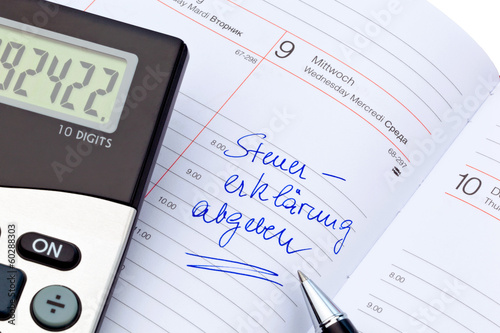 day Mardi Вторник
67-298
9 Mittwoch
Wednesday Mercredi Среда
68-297
10 D
Thu
8.00
9.00
10.00
Steuer-
erklärung
abgeben
8.00
9.00
10.00
2422
10 DIGITS
ON
÷
Adobe Stock | #60288303